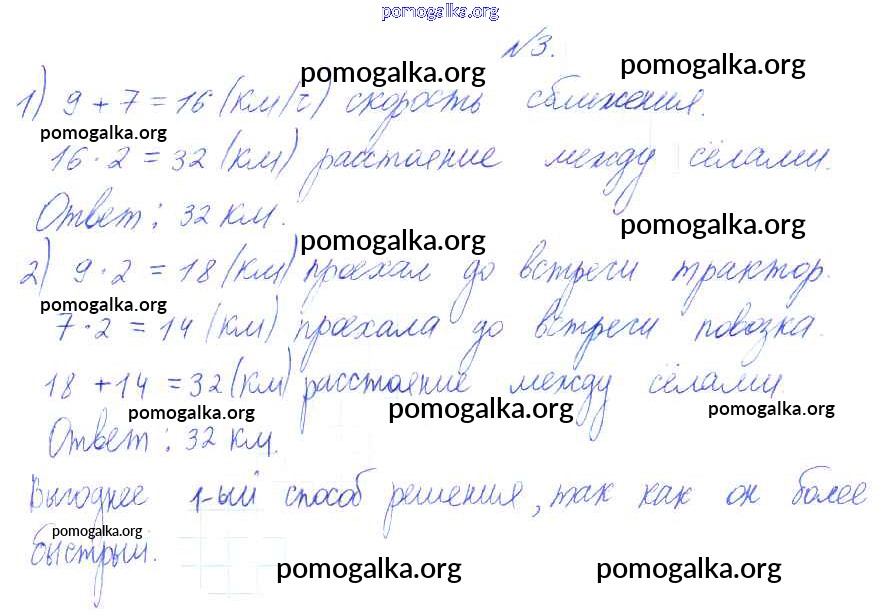 pomogalka.org
№3.
pomogalka.org pomogalka.org
1) 9 + 7 = 16 (км/ч) скорость сближения.
pomogalka.org
16 · 2 = 32 (км) расстояние между сёлами.
Ответ: 32 км.
pomogalka.org pomogalka.org
2) 9 · 2 = 18 (км) проехал до встречи трактор.
pomogalka.org
7 · 2 = 14 (км) проехала до встречи повозка.
18 + 14 = 32 (км) расстояние между сёлами
pomogalka.org pomogalka.org pomogalka.org
Ответ: 32 км.
Выгоднее 1-ый способ решения, так как он более
pomogalka.org
быстрый.
pomogalka.org pomogalka.org